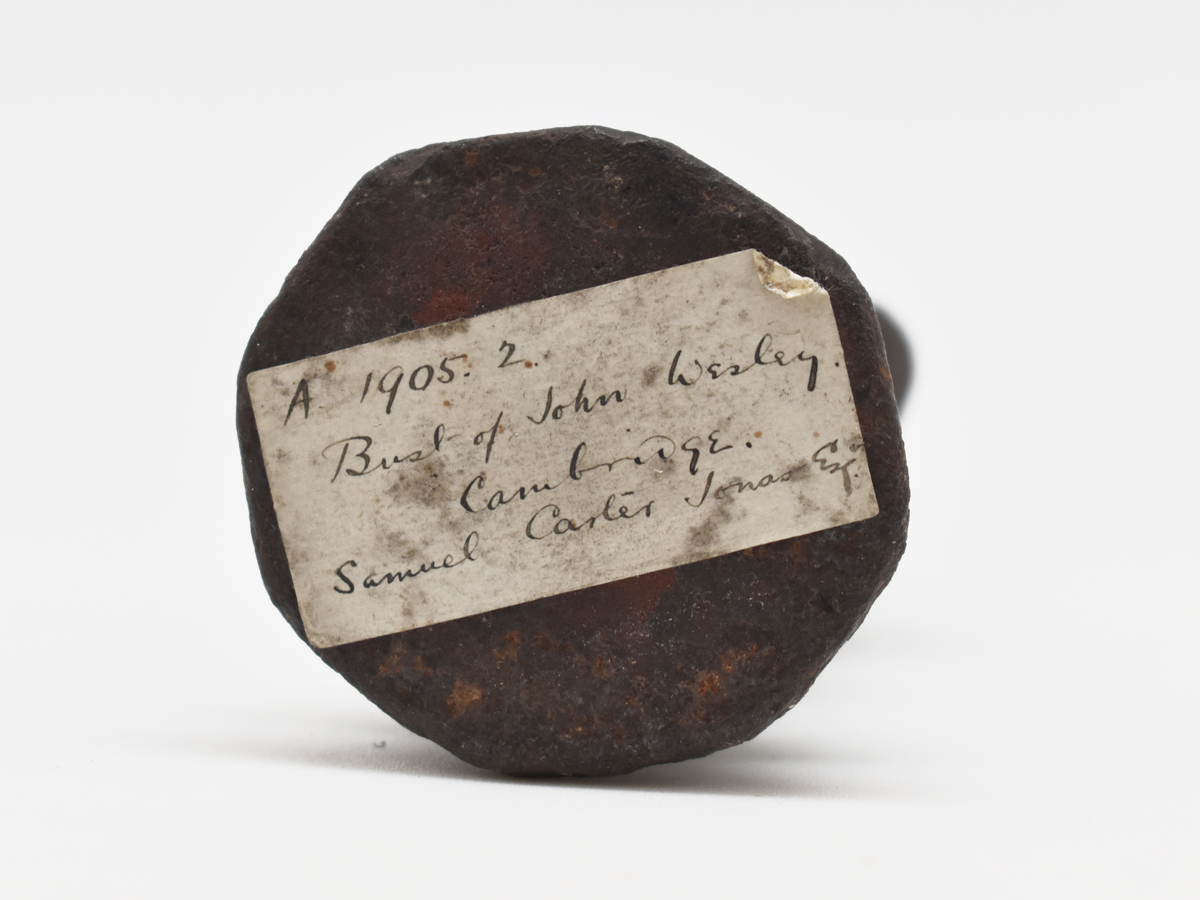 A 1905. 2.
Bust of John Wesley.
Cambridge.
Samuel Carter Jonas Esq.